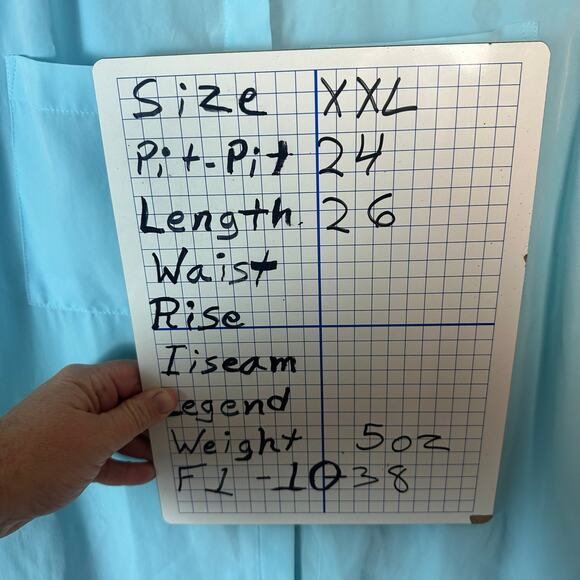 Size XXL
Pit-Pit 24
Length 26
Waist
Rise
Iiseam
Legend
Weight 5oz
F1-10-38